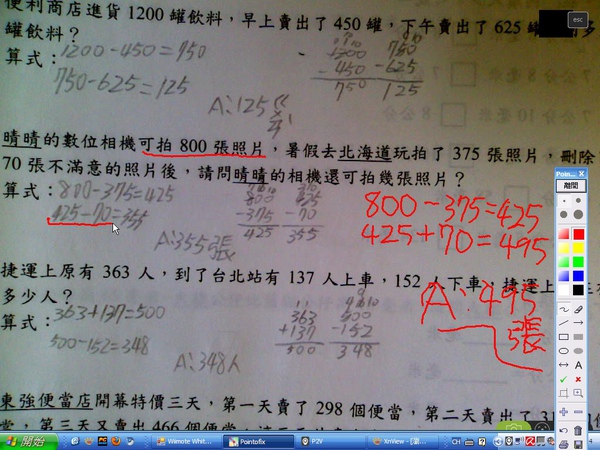 便利商店進貨 1200 罐飲料，早上賣出了 450 罐，下午賣出了 625
罐飲料？
算式：1200-450=750
750-625=125
A:125
1200
-450
750
750
-625
125
晴晴的數位相機可拍 800 張照片，暑假去北海道玩拍了 375 張照片，刪除
70 張不滿意的照片後，請問晴晴的相機還可拍幾張照片？
算式：800-375=425
425-70=355
A:355張
800
-375
425
-70
355
800-375=425
425+70=495
A:495
張
捷運上原有 363 人，到了台北站有 137 人上車，152 人下車，捷運上
多少人？
算式：363+137=500
500-152=348
A:348人
363
+137
500
500
-152
348
東強便當店開幕特價三天，第一天賣了 298 個便當，第二天賣出了
當，第三天又賣出 466 個便當
esc
Poin...
離開
A
開始
Wiimote Whit...
Pointofix
P2V
XnView - [第...
CH